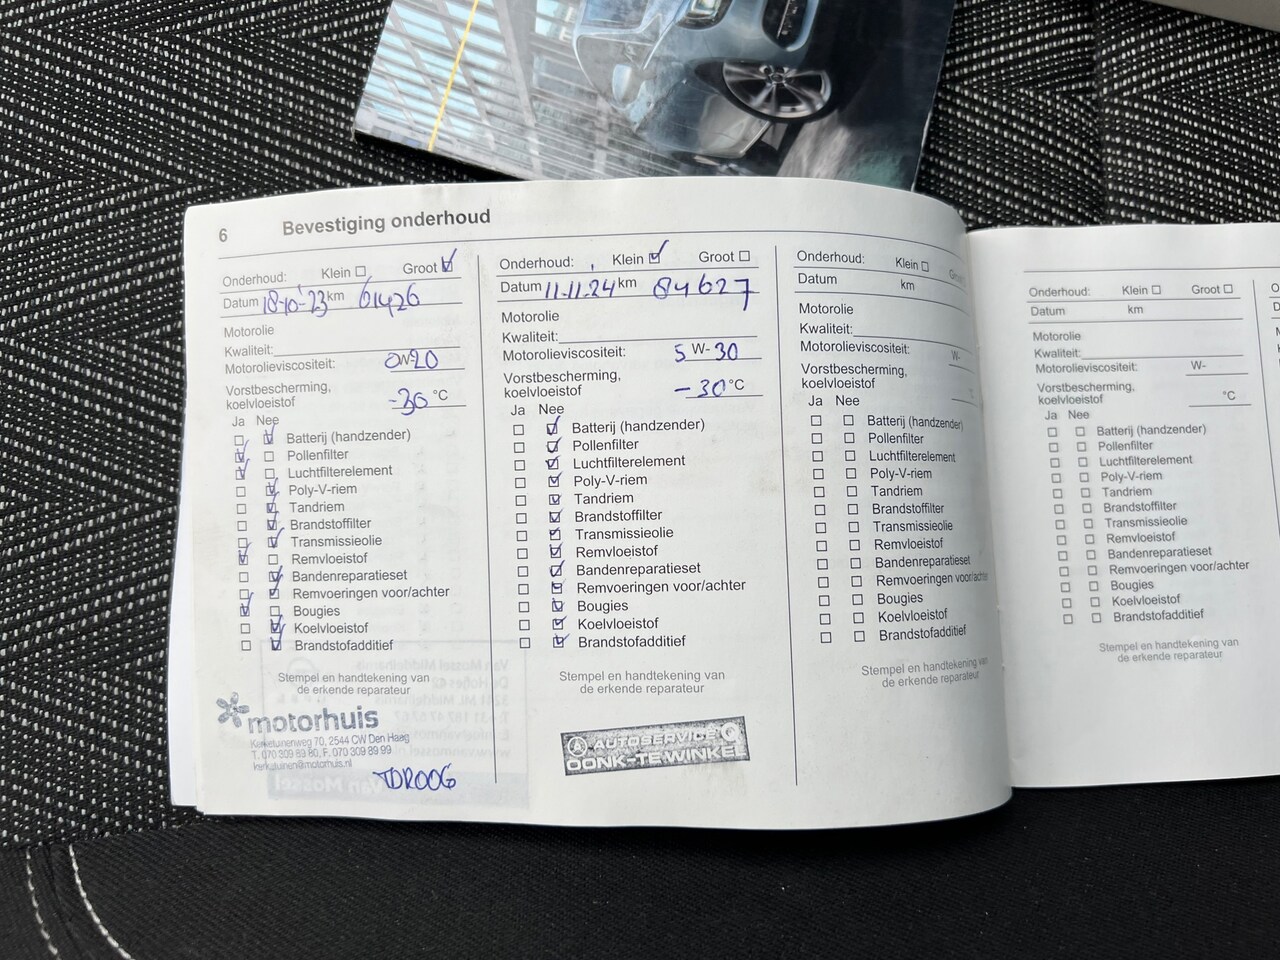 6 Bevestiging onderhoud
Onderhoud: Klein Groot
Datum 18-10-23 km 61426
Motorolie
Kwaliteit:
Motorolieviscositeit: 0W-20
Vorstbescherming,
koelvloeistof -30 °C
Ja Nee
Batterij (handzender)
Pollenfilter
Luchtfilterelement
Poly-V-riem
Tandriem
Brandstoffilter
Transmissieolie
Remvloeistof
Bandenreparatieset
Remvoeringen voor/achter
Bougies
Koelvloeistof
Brandstofadditief
Stempel en handtekening van
de erkende reparateur
motorhuis
Kerketuinenweg 70, 2544 CW Den Haag
T. 070 309 89 80, F. 070 309 89 99
kerketuinen@motorhuis.nl
TDR006
Onderhoud: Klein Groot
Datum 11-11-24 km 84627
Motorolie
Kwaliteit:
Motorolieviscositeit: 5 W- 30
Vorstbescherming,
koelvloeistof -30 °C
Ja Nee
Batterij (handzender)
Pollenfilter
Luchtfilterelement
Poly-V-riem
Tandriem
Brandstoffilter
Transmissieolie
Remvloeistof
Bandenreparatieset
Remvoeringen voor/achter
Bougies
Koelvloeistof
Brandstofadditief
Stempel en handtekening van
de erkende reparateur
AUTOSERVICE
OONK-TE WINKEL
Onderhoud: Klein Groot
Datum km
Motorolie
Kwaliteit:
Motorolieviscositeit: W-
Vorstbescherming,
koelvloeistof
Ja Nee
Batterij (handzender)
Pollenfilter
Luchtfilterelement
Poly-V-riem
Tandriem
Brandstoffilter
Transmissieolie
Remvloeistof
Bandenreparatieset
Remvoeringen voor/achter
Bougies
Koelvloeistof
Brandstofadditief
Stempel en handtekening van
de erkende reparateur
Onderhoud: Klein Groot
Datum km
Motorolie
Kwaliteit:
Motorolieviscositeit: W-
Vorstbescherming,
koelvloeistof °C
Ja Nee
Batterij (handzender)
Pollenfilter
Luchtfilterelement
Poly-V-riem
Tandriem
Brandstoffilter
Transmissieolie
Remvloeistof
Bandenreparatieset
Remvoeringen voor/achter
Bougies
Koelvloeistof
Brandstofadditief
Stempel en handtekening van
de erkende reparateur